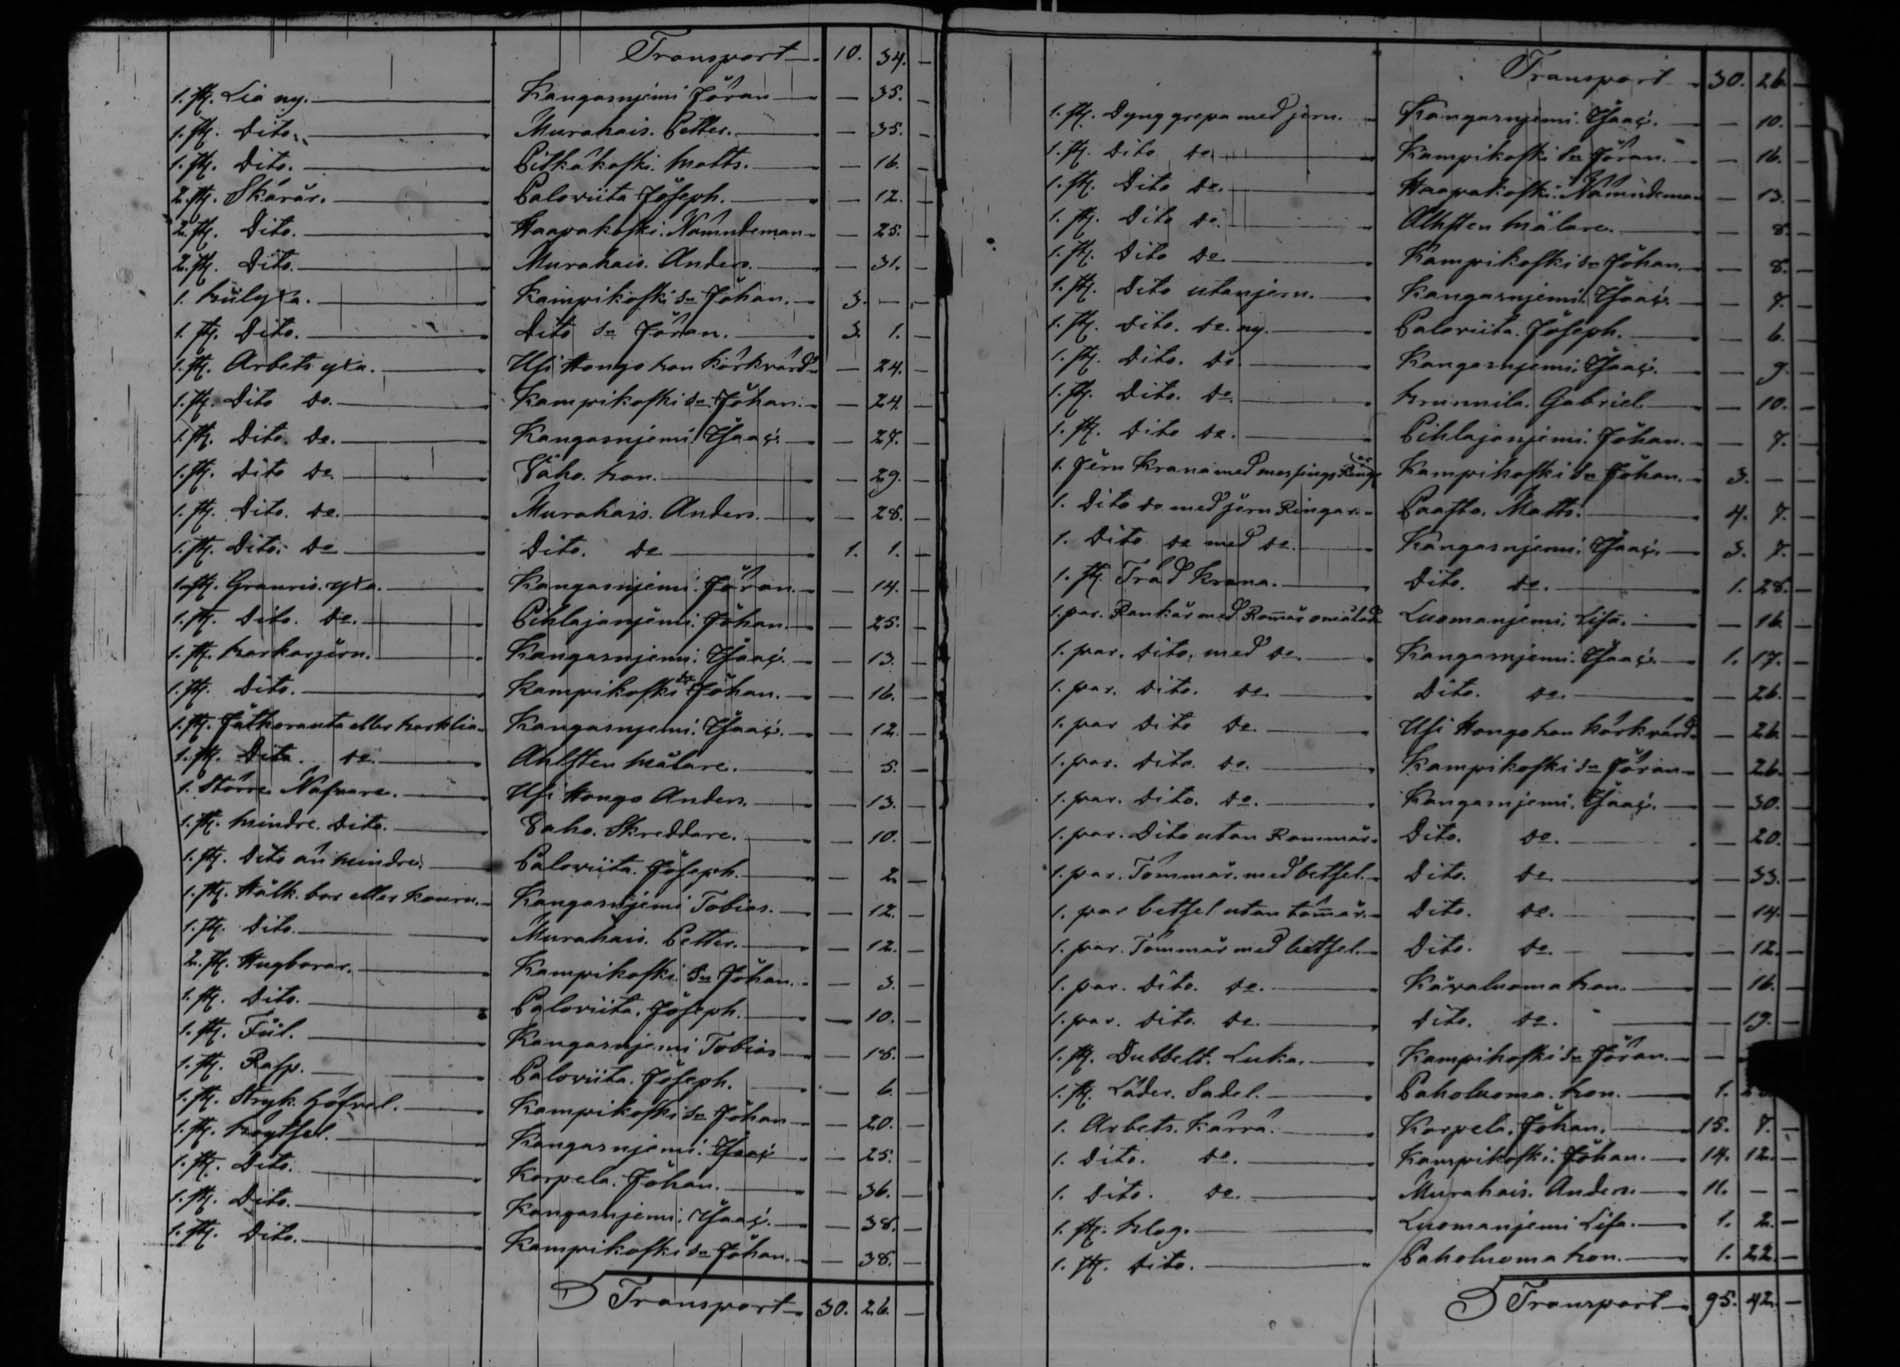 Transport 10. 34. –
1. st. Lia ny. Kangasnjemi Jöran – 35. –
1. st. Dito. Murahais. Petter. – 35. –
1. st. Dito. Pitkäkoski. Matts. – 16. –
2. st. Skäror. Paloviita Joseph. – 12. –
2. st. Dito. Haapakoski. Nämndeman – 25. –
2. st. Dito. Murahais. Anders. – 31. –
1. Kampikoski Sn Johan. 3. – –
1. st. Dito. Dito Sn Jöran. 3. 1. –
1. st. Arbets yxa. Usi Hongo han kyrkvärd – 24. –
1. st. Dito do. Kampikoski Sn Johan. – 24. –
1. st. Dito. do. Kangasnjemi Isaac. – 27. –
1. st. Dito do. han. – 29. –
1. st. Dito. do. Murahais. Anders. – 28. –
1. st. Dito. do Dito. do 1. 1. –
1. st. Granris. yxa. Kangasnjemi. Jöran. – 14. –
1. st. Dito. do. Pihlajanjemi. Johan. – 25. –
1. st. Kangasnjemi. Isaac. – 13. –
1. st. Dito. Kampikoski Sn Johan. – 16. –
1. st. eller Kangasnjemi. Isaac. – 12. –
1. st. Dito. do. Ahlsten Målare. – 5. –
1. Större Nafvare. Usi Hongo Anders. – 13. –
1. st. Mindre. Dito. Skreddare. – 10. –
1. st. Dito än Mindre. Paloviita. Joseph. – 2
1. st. Hålk. bor eller Kouru. Kangasnjemi Tobias. – 12. –
1. st. Dito. Murahais. Petter. – 12. –
2. st. Hugborar. Kampikoski. Sn Johan. – 3. –
1. st. Dito. Paloviita. Joseph. – 10. –
1. st. Fiil. Kangasnjemi Tobias – 18. –
1. st. Rasp. Paloviita. Joseph. – 6. –
1. st. Stryk. höfvel. Kampikoski Sn Johan – 20. –
1. st. Kangasnjemi. Isaac – 25. –
1. st. Dito. Korpela. Johan. – 36. –
1. st. Dito. Kangasnjemi. Isaac. – 38. –
1. st. Dito. Kampikoski Sn Johan. – 38. –
Transport 30. 26. –
Transport 30. 26. –
1. st. Dyng grepa med jern. Kangasnjemi. Isaac. – 10. –
1. st. Dito do. Kampikoski Sn Jöran. – 16. –
1. st. Dito do. Haapakoski. Nämndeman – 13. –
1. st. Dito do. Ahlsten Målare. – 8. –
1. st. Dito do Kampikoski Sn Johan. – 8. –
1. st. Dito utan jern. Kangasnjemi. Isaac. – 7. –
1. st. Dito. do. ny. Paloviita. Joseph. – 6. –
1. st. Dito. do. Kangasnjemi. Isaac. – 9. –
1. st. Dito. do. Gabriel. – 10. –
1. st. Dito do. Pihlajanjemi. Johan. – 7. –
1. Jern Krana med messings Ringar Kampikoski Sn Johan. 3. – –
1. Dito do med jern Ringar. Paasto. Matts. 4. 7. –
1. Dito do med do. Kangasnjemi. Isaac. 3. 7. –
1. st. Träd Krana. Dito. do. 1. 28. –
1. par. Rankär med omålad Luomanjemi. Lisa. – 16. –
1. par. Dito. med do Kangasnjemi. Isaac. 1. 17. –
1. par. Dito. do. Dito. do. – 26. –
1. par Dito do. Usi Hongo han kyrkvärd – 26. –
1. par. Dito. do. Kampikoski Sn Jöran – 26. –
1. par. Dito. do. Kangasnjemi. Isaac. – 30. –
1. par. Dito utan Dito. do. – 20. –
1. par. Tömmär. med betsel. Dito. do. – 33. –
1. par betsel utan tömär. Dito. do. – 14. –
1. par. Tömmär med betsel. Dito. do. – 12. –
1. par. Dito. do. han. – 16. –
1. par. Dito. do. Dito. do. – 19. –
1. st. Dubbelt. Luka. Kampikoski Sn Jöran. –
1. st. Läder. Sadel. Paholuoma. han. 1.
1. Arbets. Kärra. Korpela. Johan. 15. 7. –
1. Dito. do. Kampikoski. Johan. 14. 12. –
1. Dito. do. Murahais. Anders. 11. – –
1. st. Luomanjemi Lisa. 1. 2. –
1. st. Dito. Paholuoma han. 1. 22. –
Transport 95. 42. –